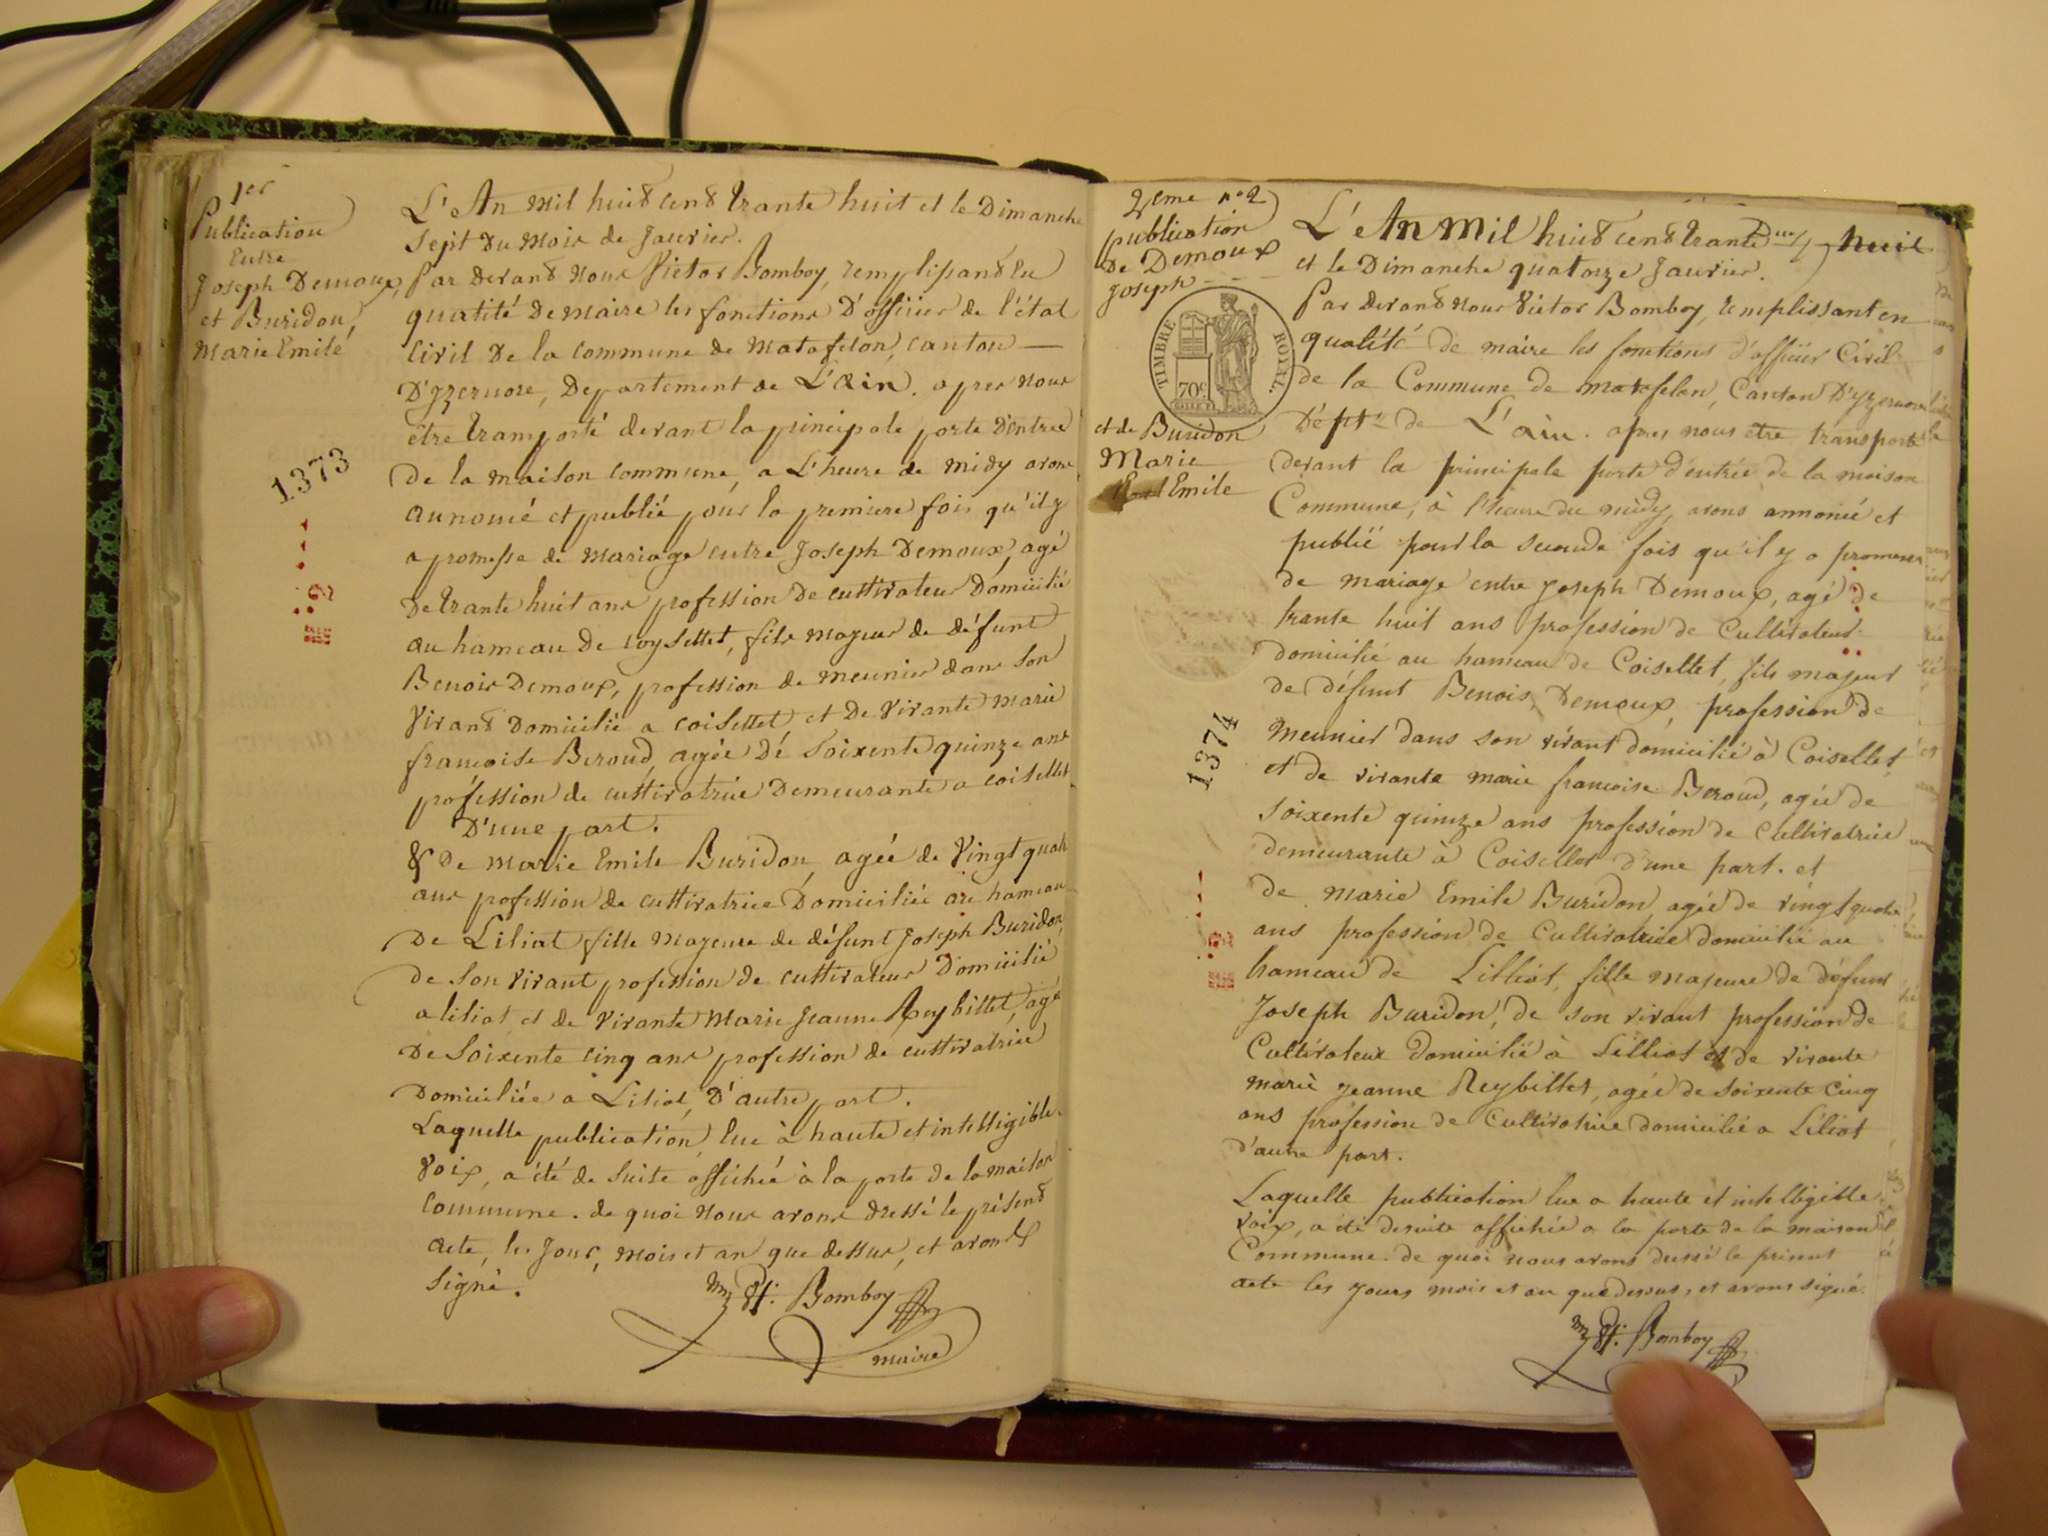 1er
Publication
Entre
Joseph Demoux,
et Buridon,
Marie Emile
1373
L'An mil huit cent trante huit et le Dimanche
Sept du mois de Janvier.
Par devant nous Victor Bomboy, remplissant en
qualité de maire les fonctions D'officier de l'état
Civil de la commune de Matafelon, canton —
D'yzernore, Département de L'Ain. apres nous
être transporté devant la principale porte d'entree
de la maison commune, a L'heure de midy avons
annoncé et publié pour la premiere fois qu'il y
a promesse de mariage entre Joseph Demoux, agé
de trante huit ans profession de cultivateur Domicilié
au hameau de coysellet, fils majeur de défunt
Benois Demoux, profession de meunier dans Son
vivant Domicilié a coisellet et de vivante marie
francoise Beroud, agée dé Soixente quinze ans
proféssion de cultivatrice Demeurante a coisellet
D'une part.
& De marie Emile Buridon, agée de vingt quatr
ans profession de cultivatrice Domiciliée au hameau
De Liliat fille majeure de défunt Joseph Buridon,
de Son vivant profession de cultivateur Domicilié
a liliat et de vivante Marie Jeanne Reybillet, agé
De Soixente cinq ans profession de cultivatrice
Domiciliée a Liliat, D'autre part.
Laquelle publication, lue à haute et intelligible
voix, a été de Suite affichée à la porte de la maison
Commune. de quoi nous avons dressé le présent
acte, les Jour, mois et an que dessus, et avons
Signé.
Bomboy
maire
2eme n° 2
publication
De Demoux
Joseph
TIMBRE ROYAL.
70c
et de Buridon
Marie
Emile
1374
L'An Mil huit cent trante huit
et le Dimanche quatorze Janvier.
Par devant nous Victor Bomboy, remplissant en
qualité de maire les fonctions d'officier Civil
de la Commune de matafelon, Canton D'yzernore
Dépt. de L'ain. apres nous etre transporté
devant la principale porte d'entrée de la maison
Commune, à l'heure du midy, avons annoncé et
publié pour la seconde fois qu'il y a promesse
de mariage entre Joseph Demoux, agé de
trante huit ans profession de Cultivateur
domicilié au hameau de Coisellet, fils majeur
de défunt Benois Demoux, profession de
meunier dans son vivant domicilié à Coisellet,
et de vivante marie francoise Beroud, agée de
soixente quinze ans profession de Cultivatrice
demeurante à Coisellet d'une part. et
de marie Emile Buridon, agée de vingt quatre
ans profession de Cultivatrice domicilié au
hameau de Lilliat, fille majeure de défunt
Joseph Buridon, de son vivant profession de
Cultivateur domicilié à Lilliat et de vivante
marie Jeanne Reybillet, agée de soixente cinq
ans profession de Cultivatrice domicilié a Liliat
d'autre part.
Laquelle publication lue a haute et intelligible
voix, a été desuite affichée a la porte de la maison
Commune. de quoi nous avons dressé le present
acte les jours mois et an que dessus, et avons signé.
Bomboy